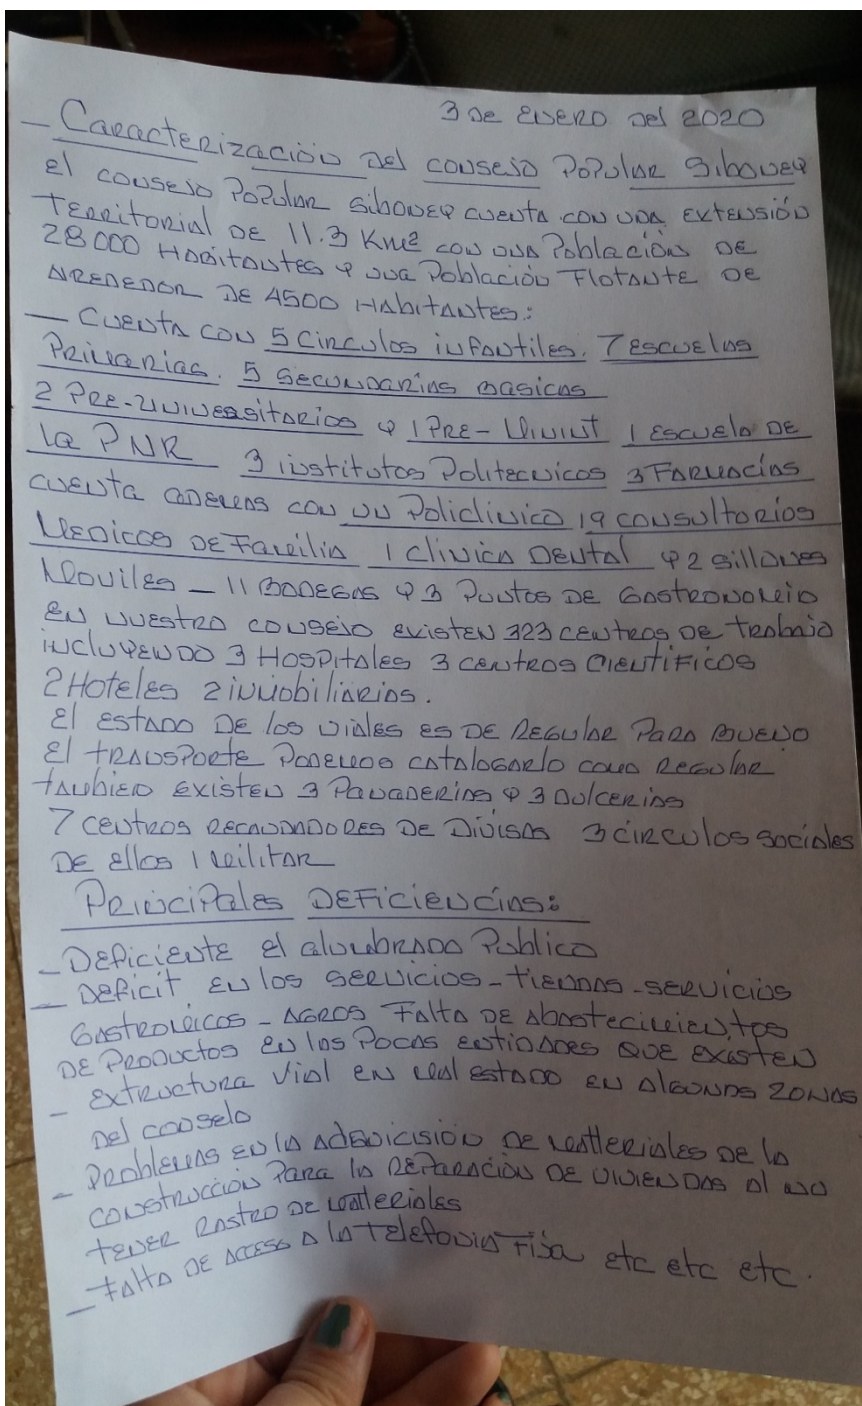 3 De ENERO Del 2020
- Caracterización Del consejo Popular Siboney
el consejo Popular Siboney cuenta con una extensión
Territorial DE 11.3 Km2 con una Población DE
28000 Habitantes y una Población Flotante DE
AREDEDOR DE 4500 Habitantes:
- Cuenta con 5 circulos infantiles. 7 escuelas
Primarias. 5 Secundarias Basicas
2 Pre-Universitarios y 1 Pre- 1 Escuela DE
la PNR 3 institutos Politecnicos 3 Farmacias
cuenta ademas con un Policlinico 19 consultorios
Medicos DE Familia 1 clinica Dental y 2 sillones
Moviles - 11 Bodegas y 3 Puntos DE Gastronomia
EN nuestro consejo existen 323 centros de trabajo
incluyendo 3 Hospitales 3 centros Cientificos
2 Hoteles 2 inmobiliarias.
El estado DE los viales es DE Regular Para Bueno
El transporte Podemos catalogarlo como Regular
tambien existen 3 Panaderias y 3 Dulcerias
7 centros recaudadores De Divisas 3 circulos sociales
DE ellos 1 militar
Principales Deficiencias:
- Deficiente el alumbrado Publico
- Deficit en los servicios - tiendas - servicios
Gastronomicos - Agros Falta DE Abastecimientos
DE Productos en las Pocas entidades que existen
- Extructura Vial en mal estado en Algunas zonas
Del consejo
- Problemas en la de materiales De la
construcción Para la Reparación DE viviendas al no
tener Rastro De materiales
- Falta DE Acceso a la Telefonia Fija etc etc etc.